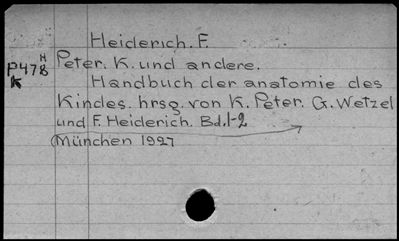 Heiderich. F.
H
P478 Peter. K. und andere.
K Handbuch der anatomie des
Kindes. hrsg. von K. Peter. G. Wetzel
und F. Heiderich. Bd. 1-2
München 1927